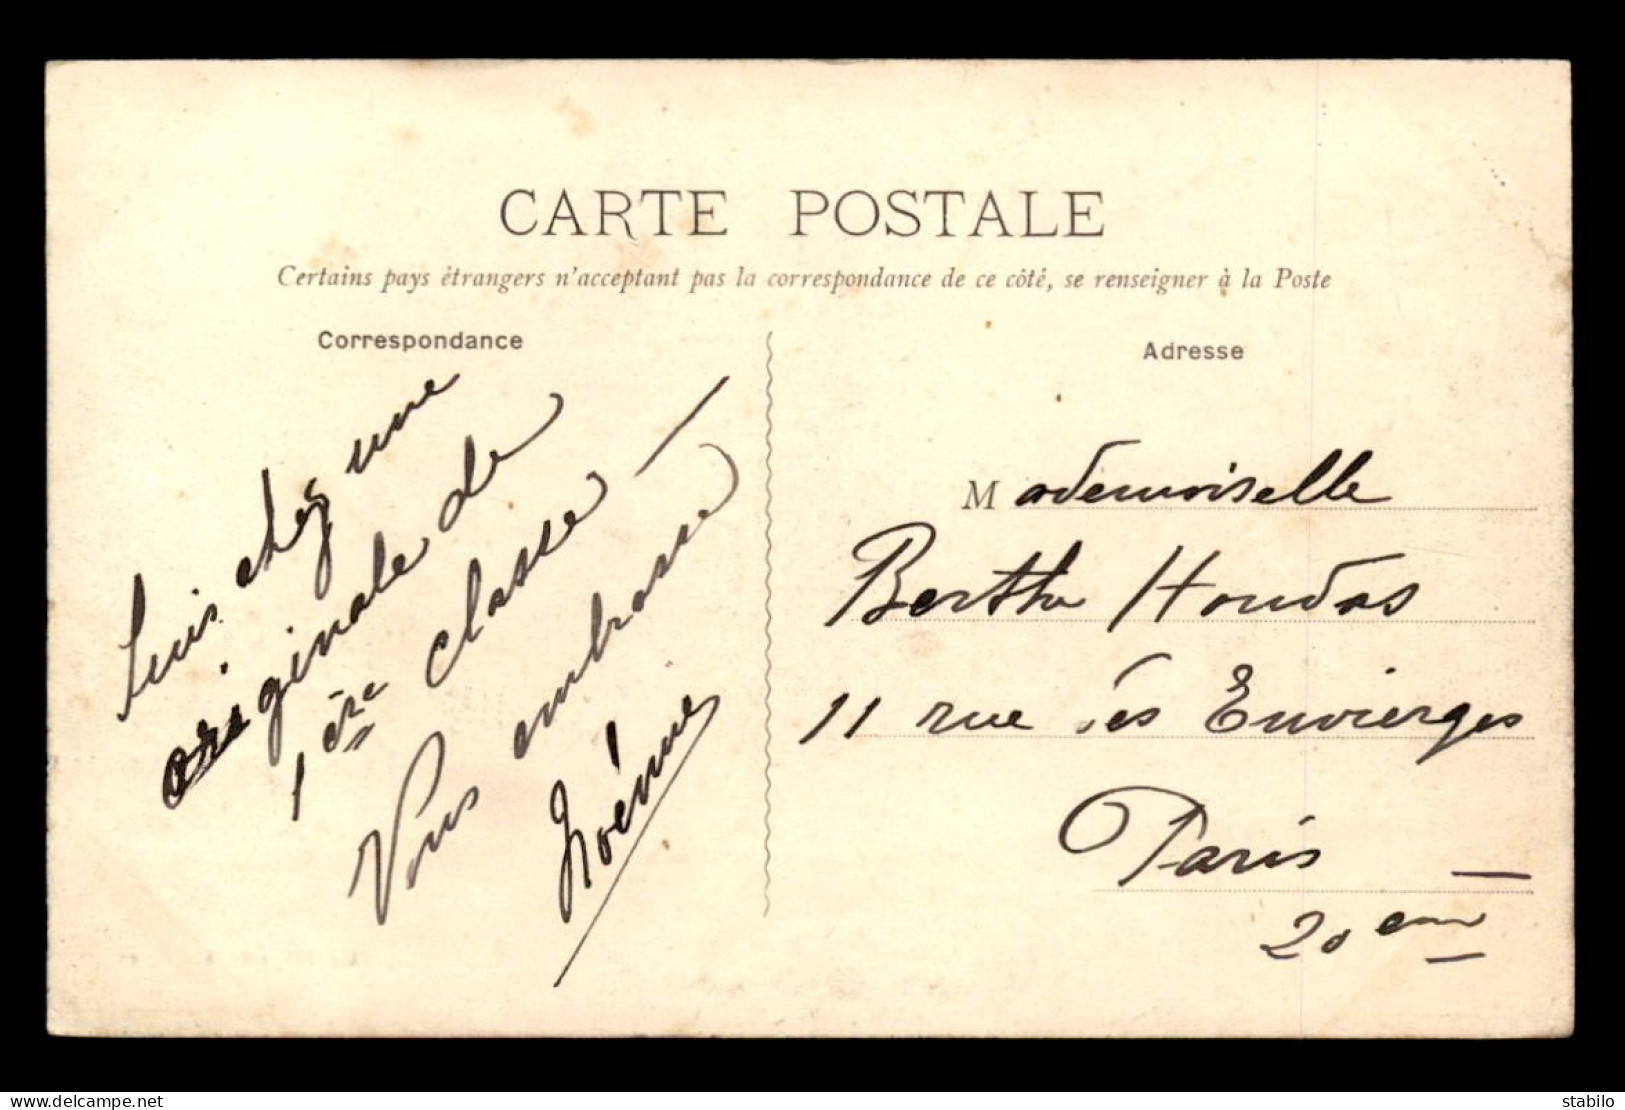 CARTE POSTALE
Certains pays étrangers n'acceptent pas la correspondance de ce côté, se renseigner à la Poste
Correspondance
Suis chez une
originale de
1ère classe —
Vous embrasse
Noémie
Adresse
Mademoiselle
Berthe Houdas
11 rue des Envierges
Paris —
20em
www.delcampe.net
stabilo